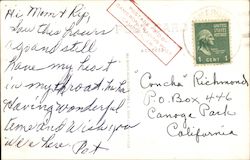 Hi, Mom & Rip,
Saw this
ago and still
have my heart
in my throat. Ha Ha
Having wonderful
time and wish you
were here Pat
"Concha" Richmond
P.O. Box 446
Canoga Park
California
1 CENT 1